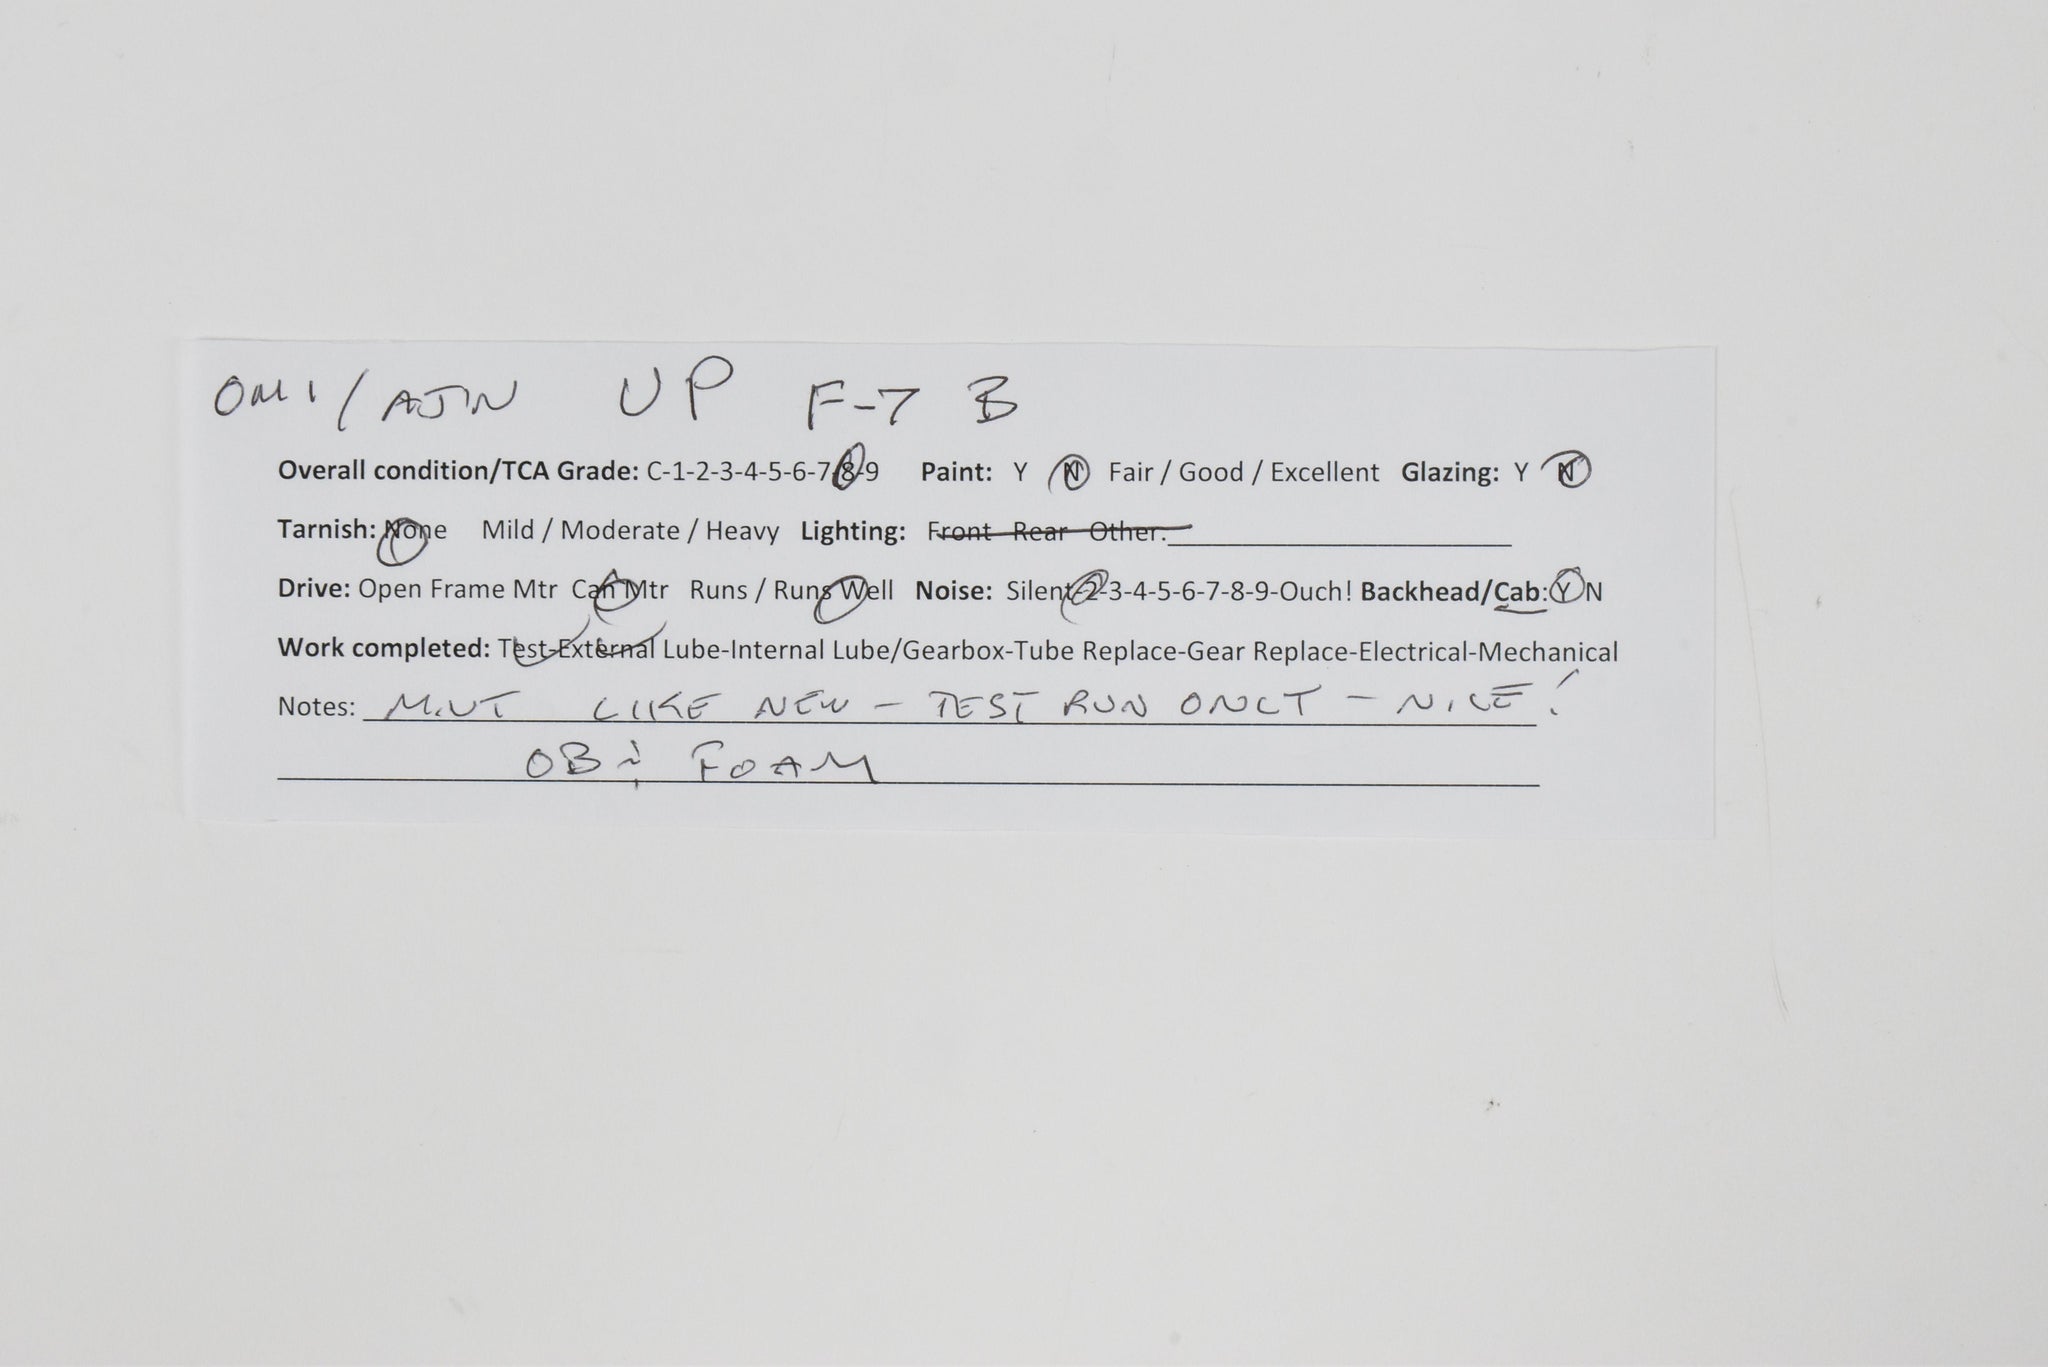 OMI/AJIN UP F-7 B
Overall condition/TCA Grade: C-1-2-3-4-5-6-7-8-9 Paint: Y N Fair / Good / Excellent Glazing: Y N
Tarnish: None Mild / Moderate / Heavy Lighting: Front Rear Other:
Drive: Open Frame Mtr Can Mtr Runs / Runs Well Noise: Silent-2-3-4-5-6-7-8-9-Ouch! Backhead/Cab: Y N
Work completed: Test-External Lube-Internal Lube/Gearbox-Tube Replace-Gear Replace-Electrical-Mechanical
Notes: MINT LIKE NEW - TEST RUN ONLY - NICE!
OB & FOAM